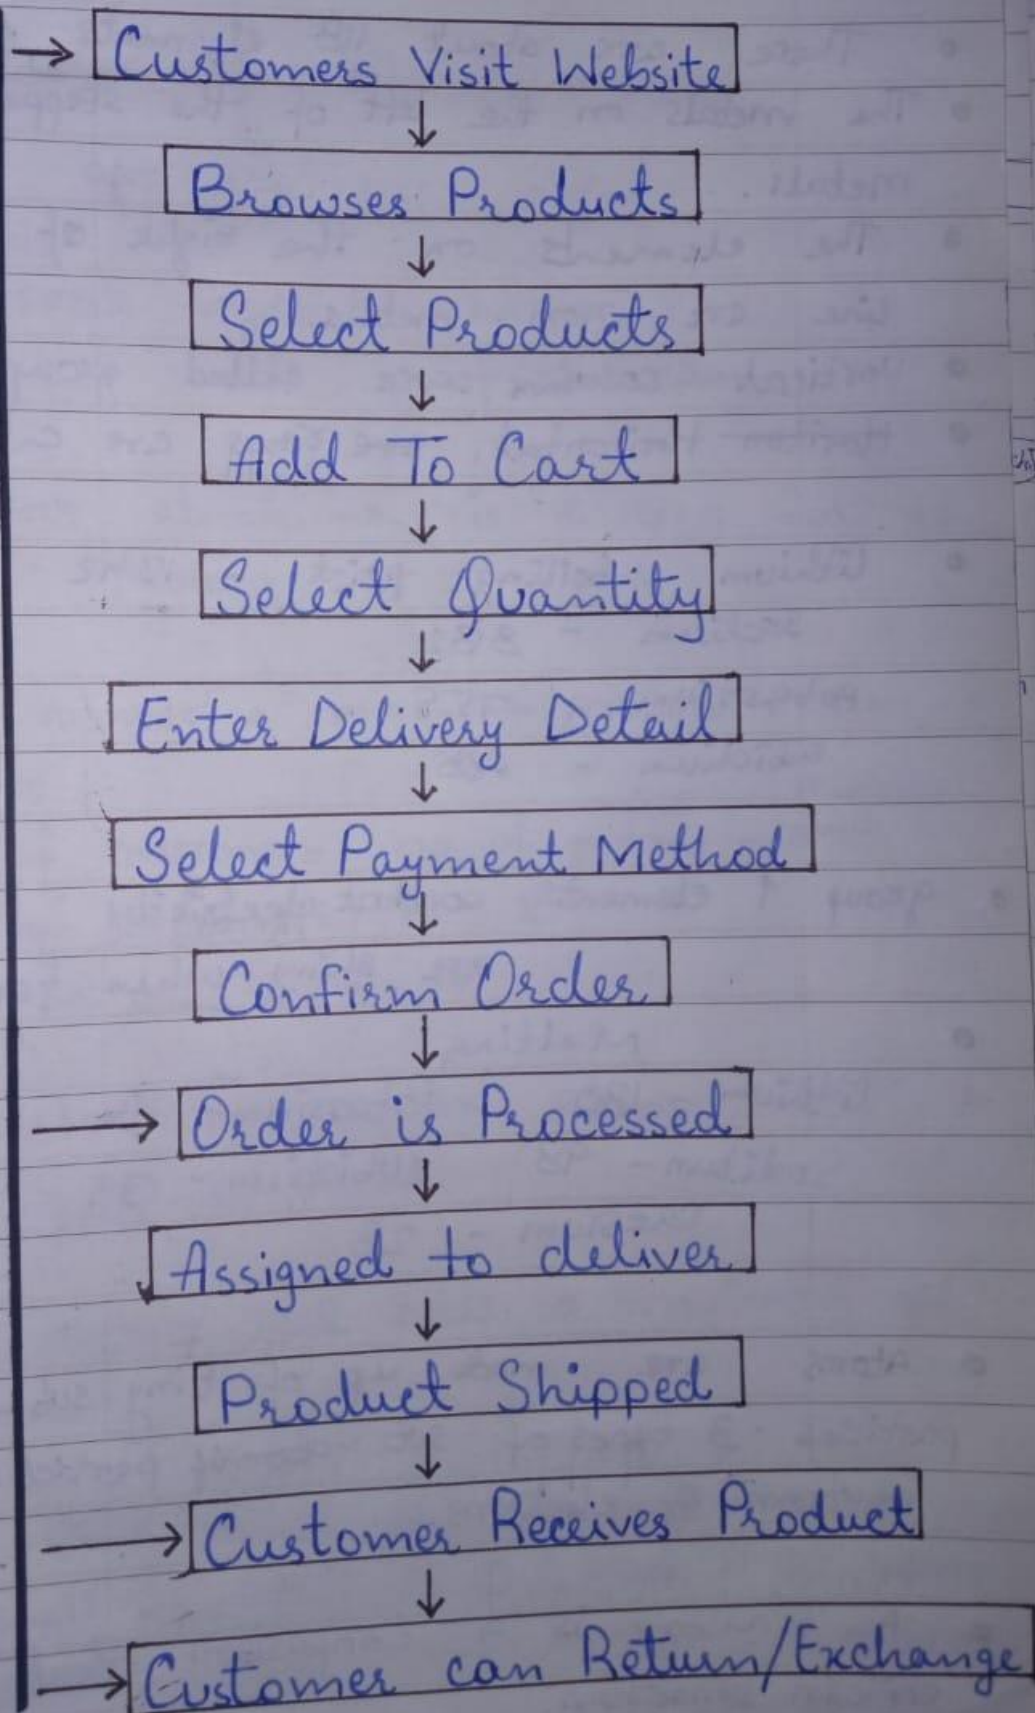 Customers Visit Website
Browses Products
Select Products
Add To Cart
Select Quantity
Enter Delivery Detail
Select Payment Method
Confirm Order
Order is Processed
Assigned to deliver
Product Shipped
Customer Receives Product
Customer can Return/Exchange